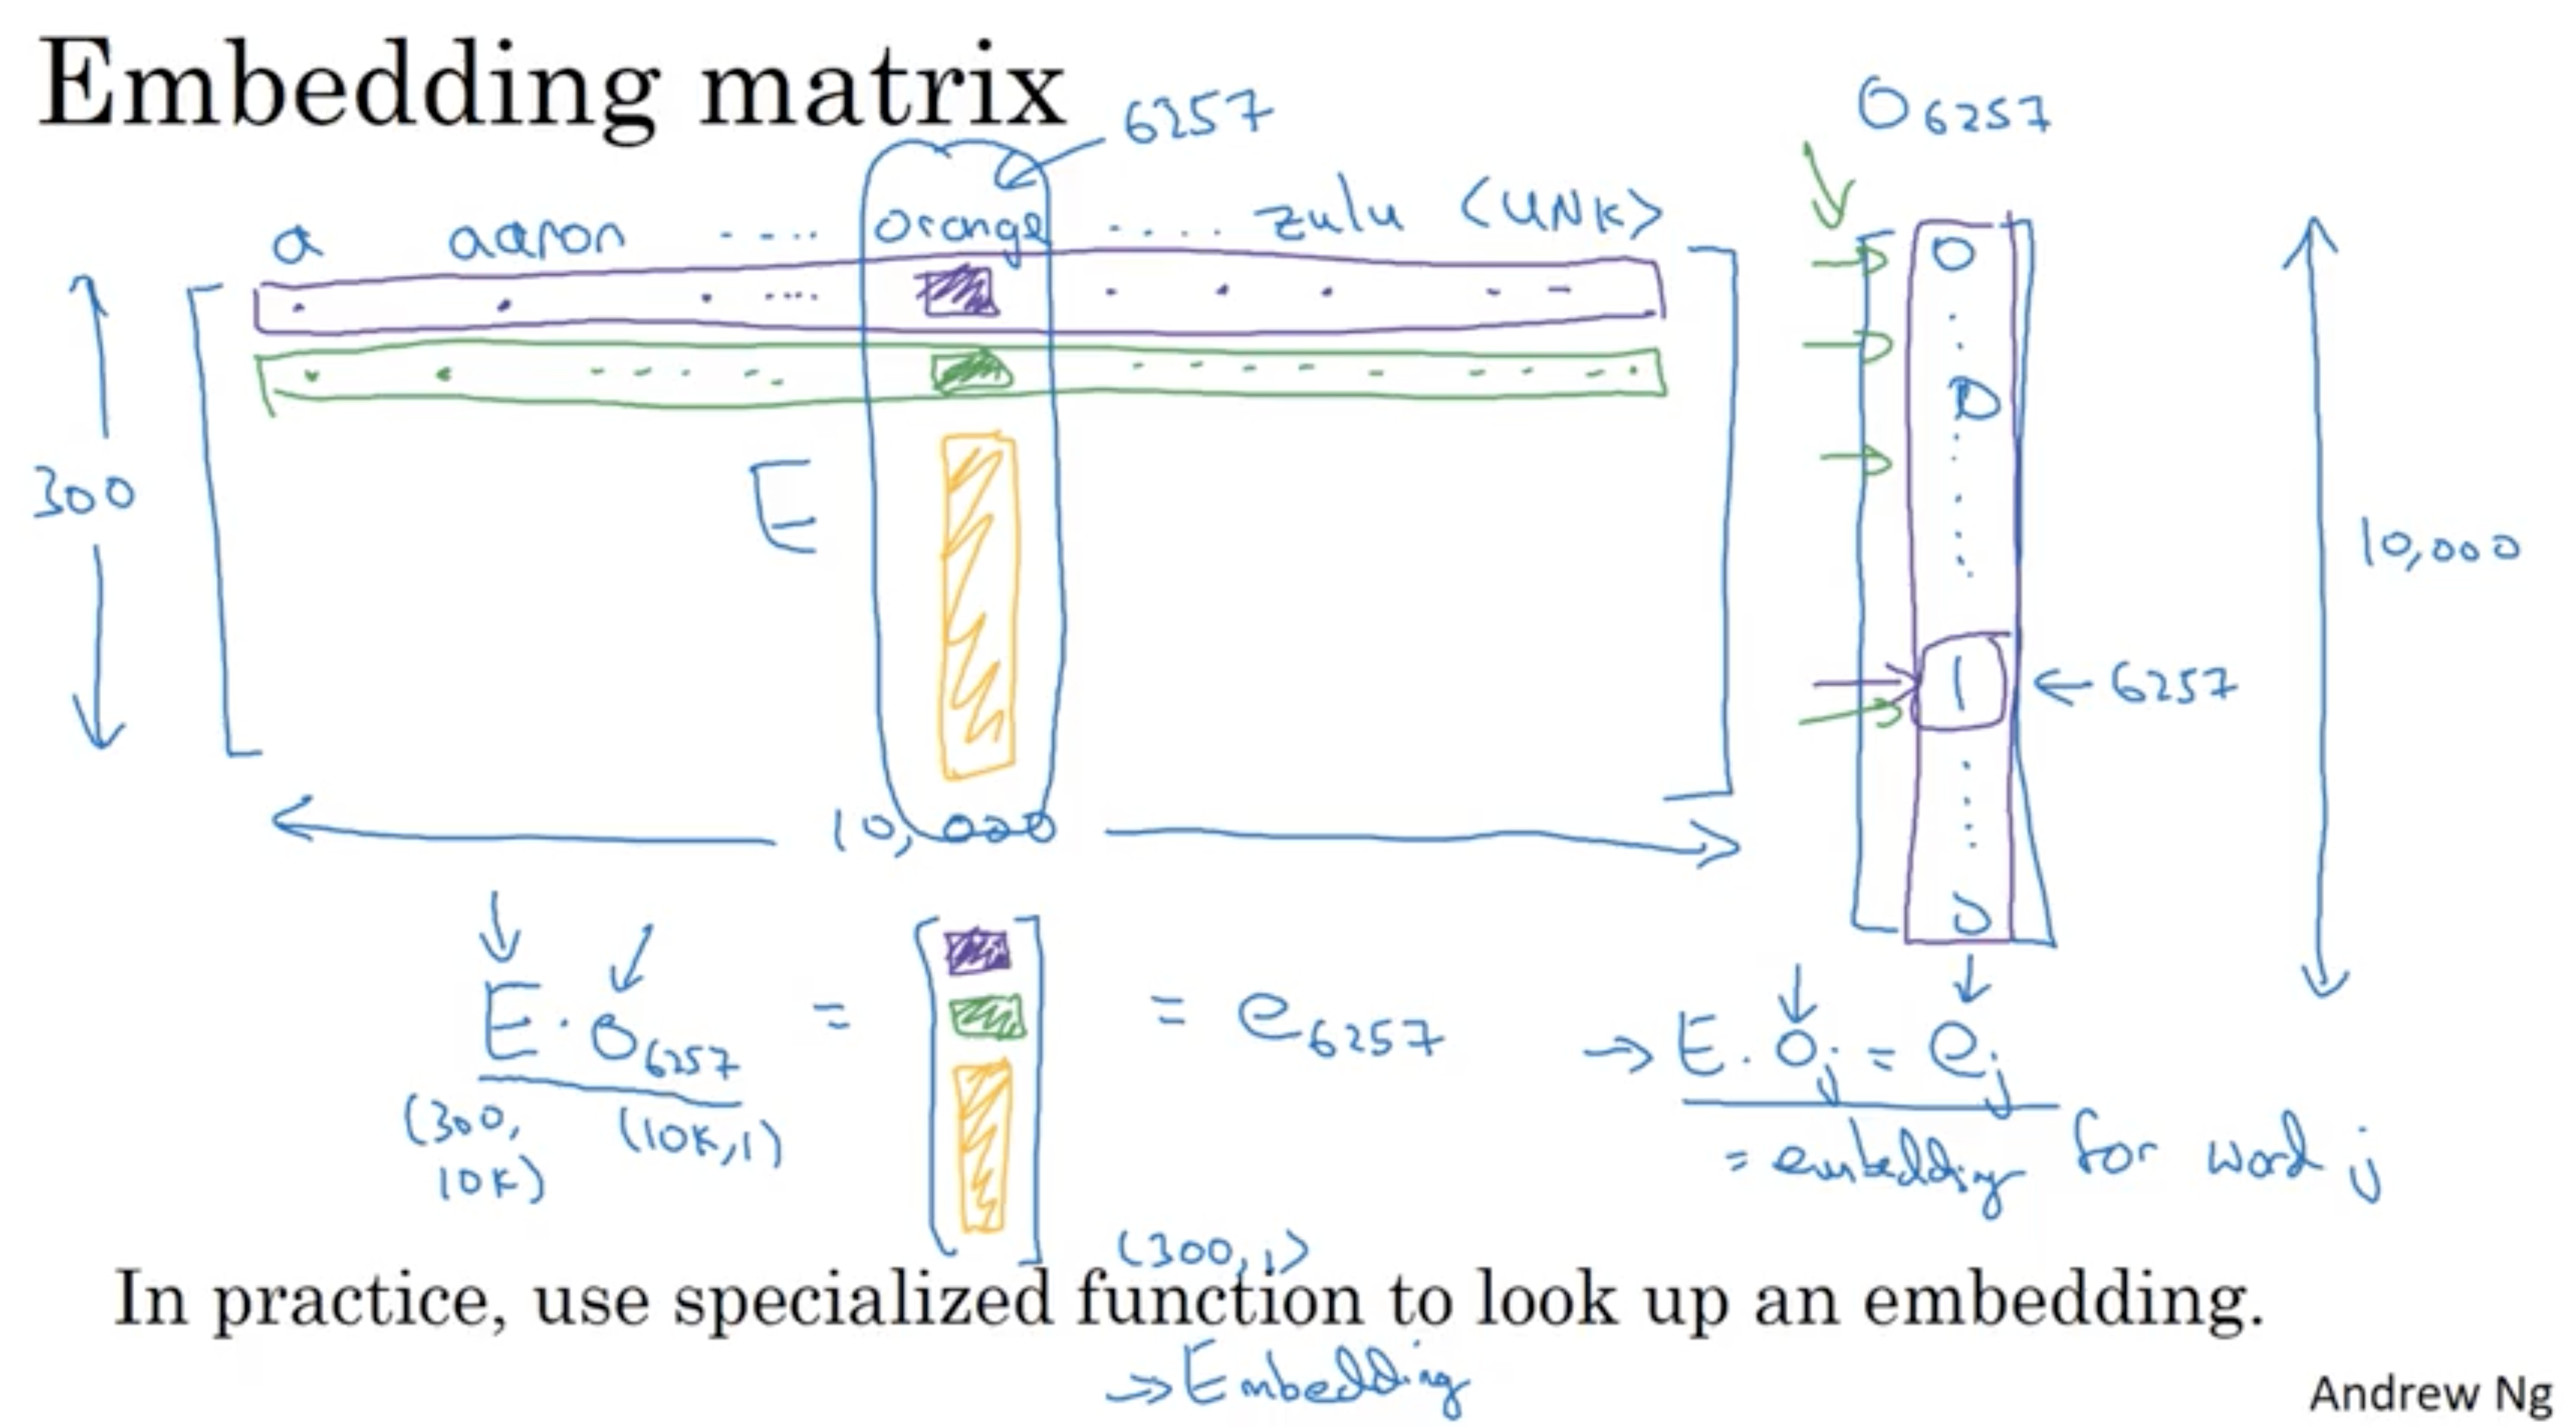 Embedding matrix
6257
O6257
a aaron ---.. orange ..... zulu <UNK>
0
0
300
E
10,000
1 ← 6257
10,000
0
E · O6257 = [ ] = e6257
(300, 10K) (10K,1)
→ E · Oj = ej
= embedding for word j
(300,1)
In practice, use specialized function to look up an embedding.
→ Embedding
Andrew Ng